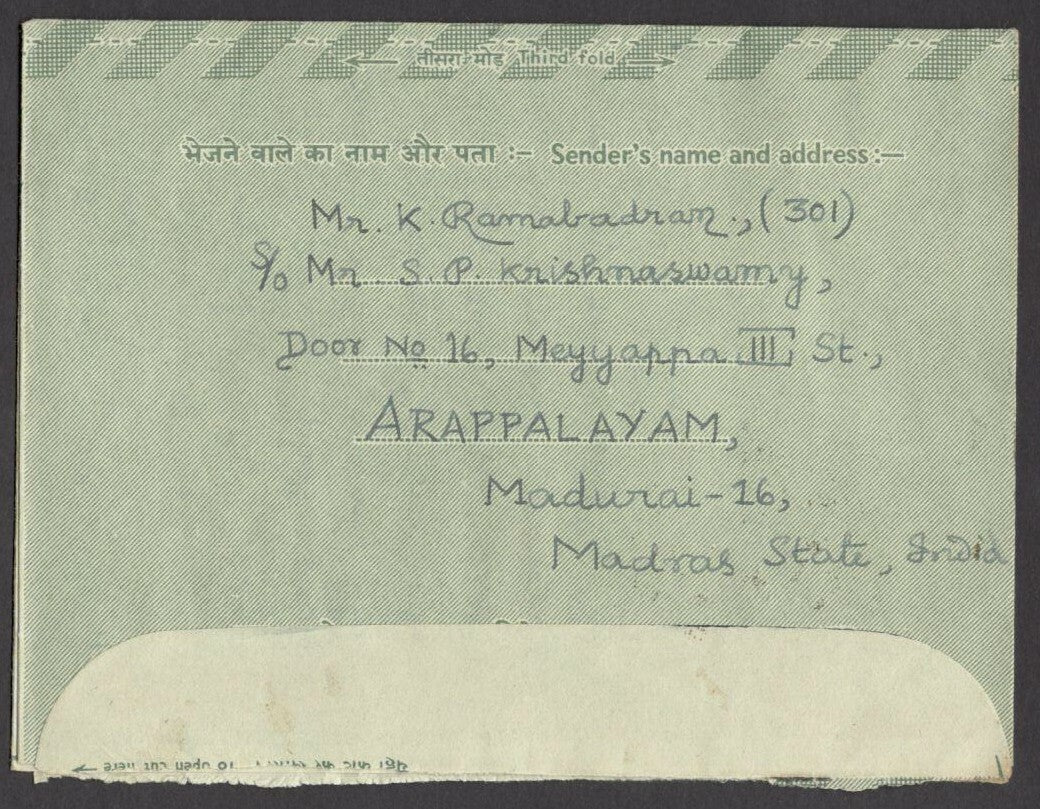 तीसरा मोड़ Third fold
भेजने वाले का नाम और पता :– Sender's name and address :—
Mr. K. Ramabadran., (301)
S/o Mr S. P. Krishnaswamy,
Door No 16, Meyyappa III St.,
ARAPPALAYAM,
Madurai-16,
Madras State, India
To open cut here